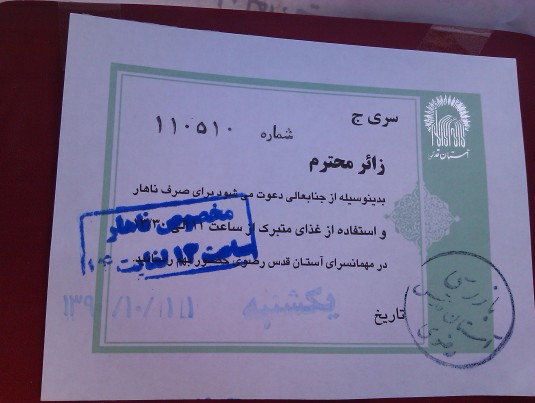 آستان قدس
سری ج
شماره ۱۱۰۵۱۰
زائر محترم
بدینوسیله از جنابعالی دعوت می‌شود برای صرف ناهار
و استفاده از غذای متبرک از ساعت
در مهمانسرای آستان قدس رضوی حضور بهم رسانید.
مخصوص ناهار
ساعت ۱۲ لغایت
تاریخ یکشنبه ۱۳۹۰/۱۰/۱۱
بازرسی
آستان قدس
رضوی